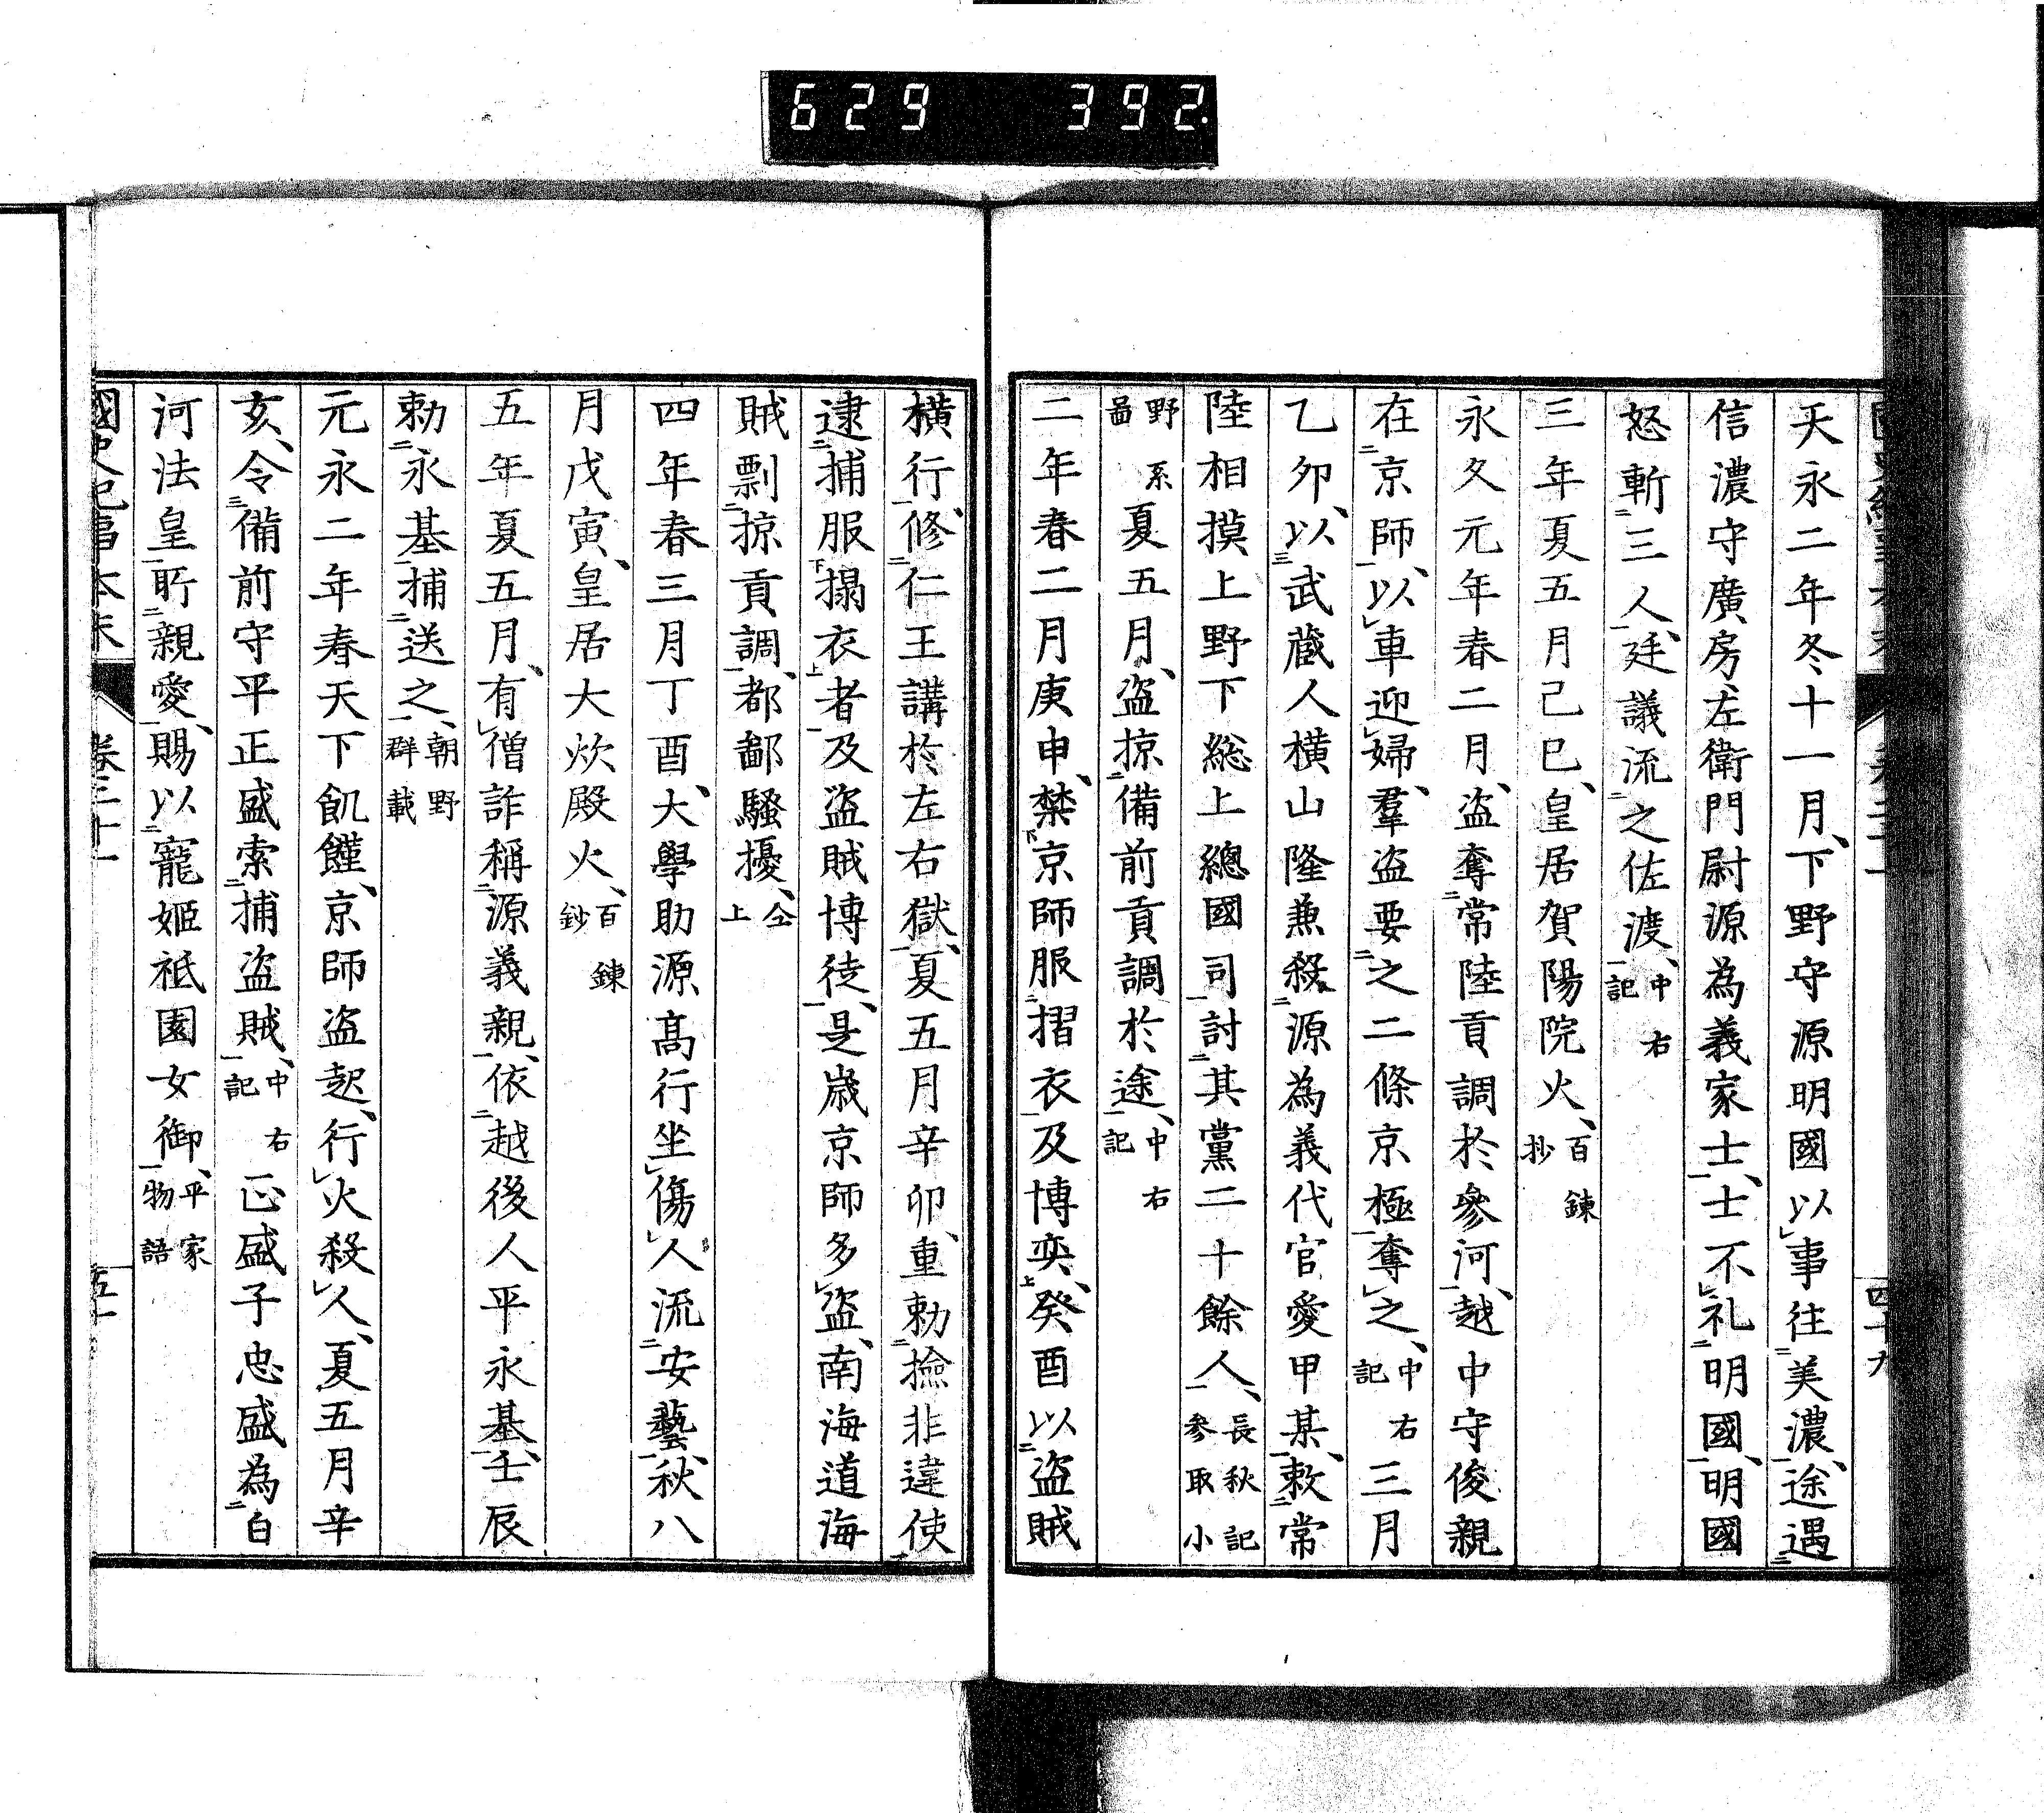 629 392.
天永二年冬十一月、下野守源明國以事往美濃、途遇
信濃守廣房、左衛門尉源為義家士、士不礼明國、明國
怒斬三人、廷議流之佐渡、中右記
三年夏五月己巳、皇居賀陽院火、百錬抄
永久元年春二月、盗奪常陸貢調於參河、越中守俊親
在京師、以車迎婦、羣盗要之二條京極奪之、中右記三月
乙卯、以武蔵人横山隆兼殺源為義代官愛甲某、敕常
陸相摸上野下総上總國司討其黨二十餘人、長秋記參取小
野系啚夏五月、盗掠備前貢調於途、中右記
二年春二月庚申、禁京師服摺衣及博奕、癸酉以盗賊
四十九
横行、修仁王講於左右獄、夏五月辛卯、重勅撿非違使
逮捕服搨衣者及盗賊博徒、是歳京師多盗、南海道海
賊剽掠貢調、都鄙騒擾、仝上
四年春三月丁酉、大學助源高行坐傷人流安藝、秋八
月戊寅、皇居大炊殿火、百錬鈔
五年夏五月、有僧詐稱源義親、依越後人平永基、壬辰
勅永基捕送之、朝野群載
元永二年春天下飢饉、京師盗起、行火殺人、夏五月辛
亥、令備前守平正盛索捕盗賊、中右記正盛子忠盛為白
河法皇所親愛、賜以寵姬祇園女御、平家物語
國史紀事本末 卷三十一 五十